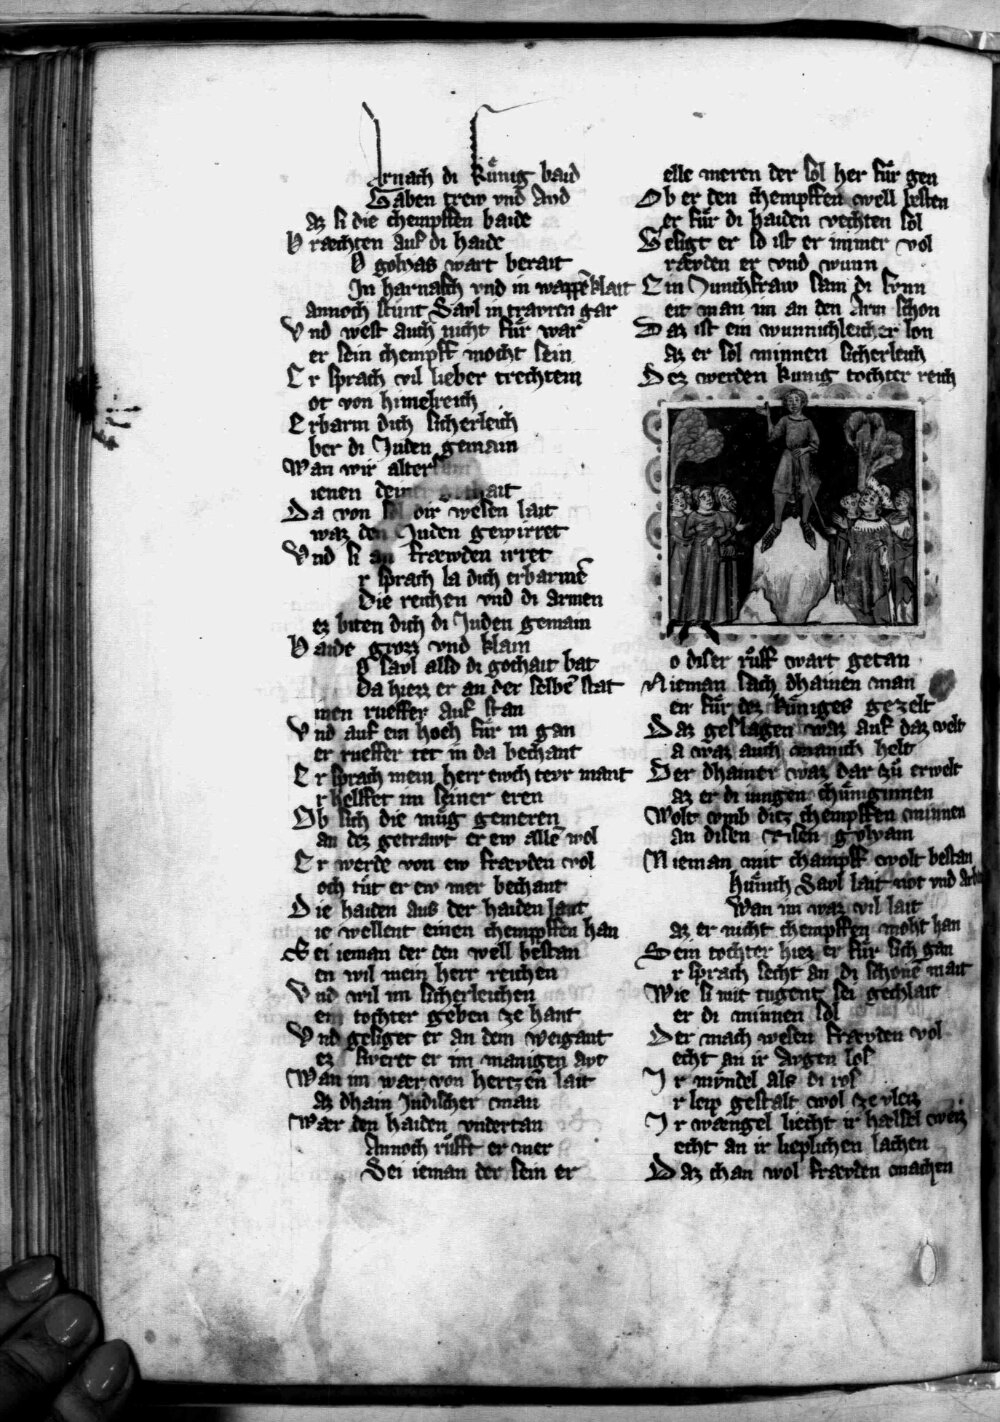 arnach di kuͤnig baid
Gaben trew vnd Ayd
az si die chempffen baide
Præchten auf di haide
golyas wart berait
In harnasch vnd in wappēklait
annoch stuͤnt Sayl in trayren gar
Vnd west auch nicht fuͤr war
er sein chempff mocht sein
Er sprach vil lieber trechtein
ot von himelreich
Erbarm dich sicherleich
ber di Juden gemain
Wan wir alter
ienen deiner gothait
Da von sol dir wesen lait
waz den Juden gewirret
Vnd si an fræwden irret
r sprach la dich erbarmē
Die reichen vnd di armen
ez biten dich di Juden gemain
Baide grozz vnd klain
o Sayl also di gothait bat
Da hiezz er an der selbē stat
inen rueffer auf stan
Vnd auf ein hoch fuͤr in gan
er rueffer tet in da bechant
Er sprach mein herr ewch teyr mant
r helffet im seiner eren
Ob sich die muͤg gemeren
an dez getrawt er ew allē wol
Er werde von ew fræyden vol
och tuͤt er ew mer bechant
Die haiden aus der haiden lant
ie wellent einen chempffen han
Sei ieman der den well bestan
en wil mein herr reichen
Vnd wil im sicherleichen
ein tochter geben ze hant
Vnd gesiget er an dem weigant
ez sweret er im manigen ayt
Wan im wær von hertzen lait
az dhain Judischer man
Wær den haiden vndertan
Annoch ruͤfft er mer
Sei ieman der sein er
elle meren der sol her fuͤr gen
Ob er den chempffen well besten
er fuͤr di haiden vechten sol
Gesigt er so ist er immer vol
ræyden er vnd wunn
Ein Junchfraw sam di sunn
eit man im an den Arm schon
Daz ist ein wunnichleicher lon
az er sol minnen sicherleich
Dez werden kunig tochter reich
o diser ruͤff wart getan
Nieman sach dhainen man
en fuͤr dez kuͤniges gezelt
Daz geslagen waz auf daz velt
a waz auch manich helt
Der dhainer waz dar zuͤ erwelt
az er di iungen chuͤniginnen
Wolt vmb ditz chempffen minnen
an disen risen golyam
Nieman mit champff wolt bestan
kuͤnich Sayl lait not vnd
Wan im waz vil lait
az er nicht chempffen moht han
Sein tochter hiez er fuͤr sich gan
r sprach secht an di schonē mait
Wie si mit tugent sei gechlait
er di minnen sol
Der mach wesen fræyden vol
echt an ir Avgen los
Ir muͤndel als di ros
r leip gestalt wol ze vleiz
Ir wængel liecht ir hælsel weiz
echt an ir lieplichen lachen
Daz chan wol fræyden machen